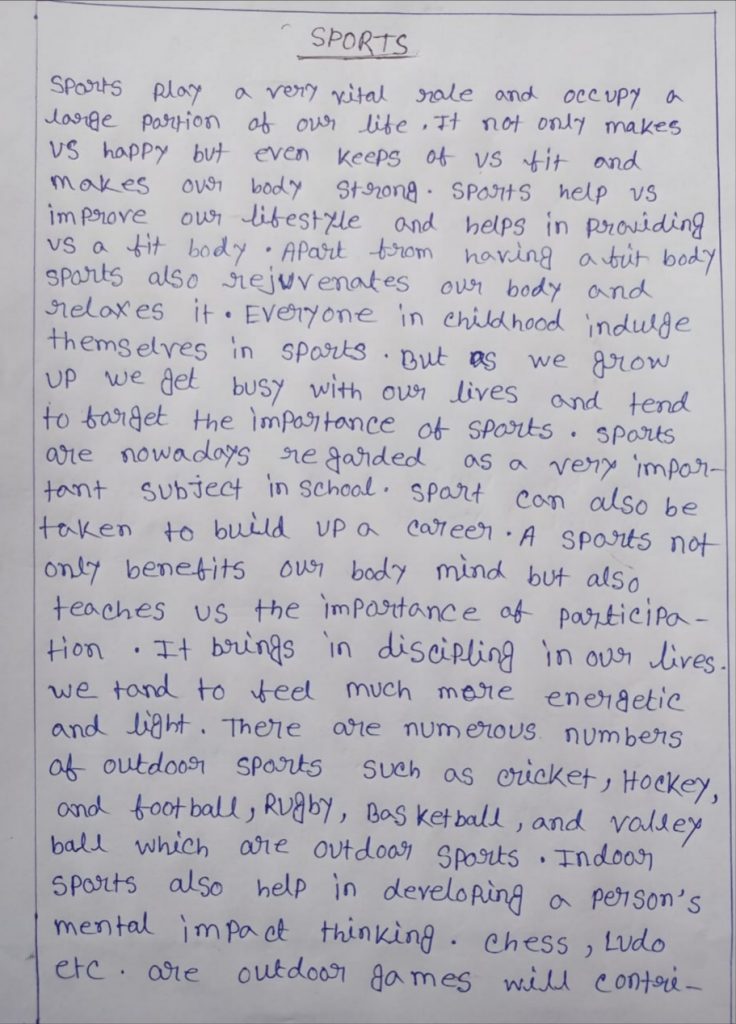 SPORTS
Sports play a very vital role and occupy a
large portion of our life. It not only makes
us happy but even keeps of us fit and
makes our body strong. Sports help us
improve our lifestyle and helps in providing
us a fit body. Apart from having a fit body
sports also rejuvenates our body and
relaxes it. Everyone in childhood indulge
themselves in sports. But as we grow
up we get busy with our lives and tend
to farget the importance of sports. sports
are nowadays regarded as a very impor-
tant subject in school. Sport can also be
taken to build up a career. A sports not
only benefits our body mind but also
teaches us the importance of participa-
tion. It brings in discipling in our lives.
we tand to feel much more energetic
and light. There are numerous numbers
of outdoor sports such as cricket, Hockey,
and football, Rugby, Basketball, and valley
ball which are outdoor sports. Indoor
sports also help in developing a person's
mental impact thinking. Chess, Ludo
etc. are outdoor games will contri-